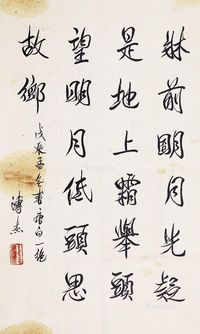 牀前明月光疑
是地上霜舉頭
望明月低頭思
故鄉
戊辰孟冬書李白一絕
溥杰